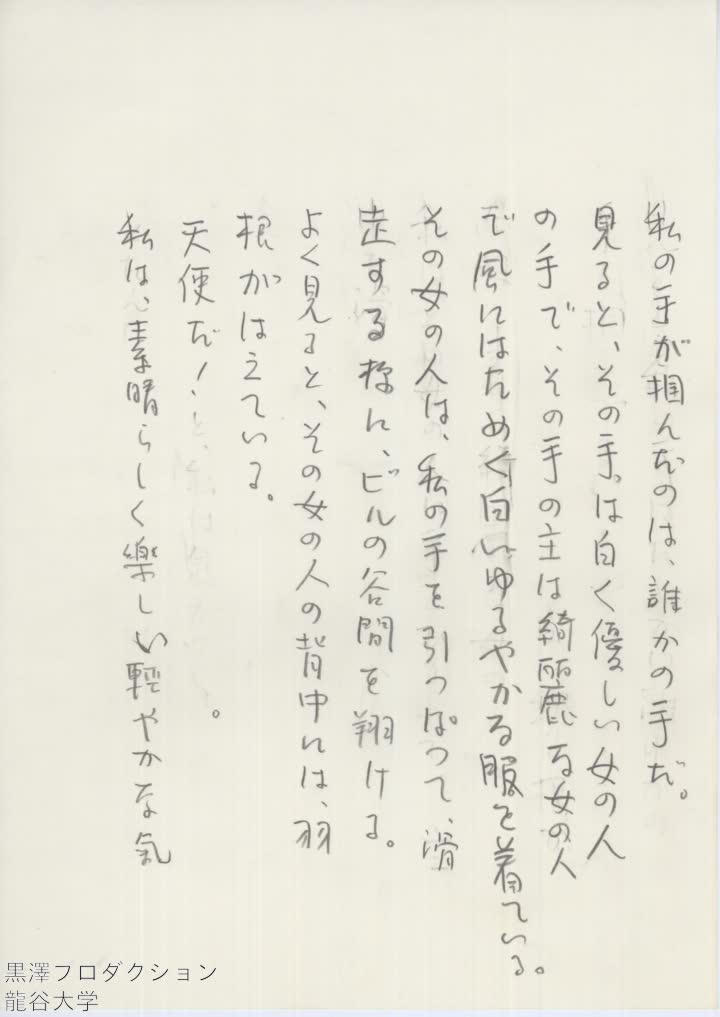 私の手が掴んだのは、誰かの手だ。
見ると、その手は白く優しい女の人
の手で、その手の主は綺麗な女の人
で風にはためく白いゆるやかな服を着ている。
その女の人は、私の手を引っぱつて、滑
走する様に、ビルの谷間を翔ける。
よく見ると、その女の人の背中には、羽
根がはえている。
天使だ！
。
私は、素晴らしく楽しい輕やかな氣
黒澤フロダクション
龍谷大学